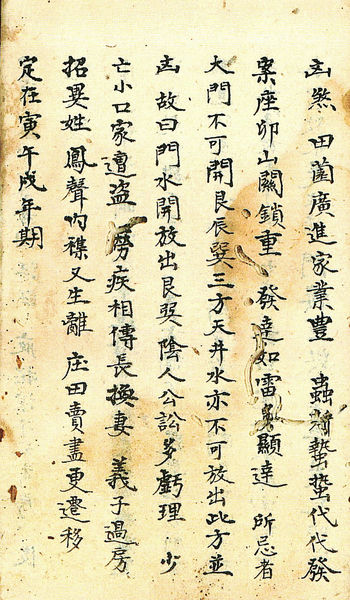 凶煞 田園廣進家業豐 螽斯蟄蟄代代發
案座卯山關鎖重 發達如雷多顯達 所忌者
大門不可開艮辰巽三方天井水亦不可放出此方並
凶 故曰門水開放出艮巽陰人公訟多虧理 少
亡小口家遭盜 癆疾相傳長換妻 義子過房
招異姓 鳳聲內襍又生離 庄田賣盡更遷移
定在寅午戌年期